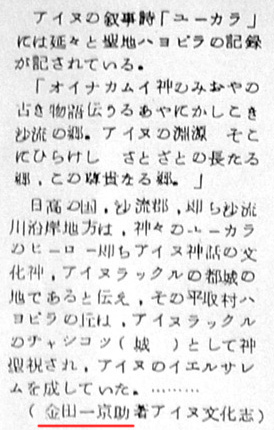 アイヌの叙事詩「ユーカラ」
には延々と聖地ハヨピラの記録
が記されている。
「オイナカムイ神のみおやの
古き物語伝うるあやにかしこき
沙流の郷。アイヌの淵源 そこ
にひらけし さとざとの長たる
郷,この尊貴なる郷。」
日高の国,沙流郡,即ち沙流
川沿岸地方は,神々のユーカラ
のヒーロー即ちアイヌ神話の文
化神,アイヌラックルの都城の
地であると伝え,その平取村ハ
ヨピラの丘は,アイヌラックル
のチャシコツ(城 )として神
聖視され,アイヌのイエルサレ
ムを成していた。………
(金田一京助著アイヌ文化志)